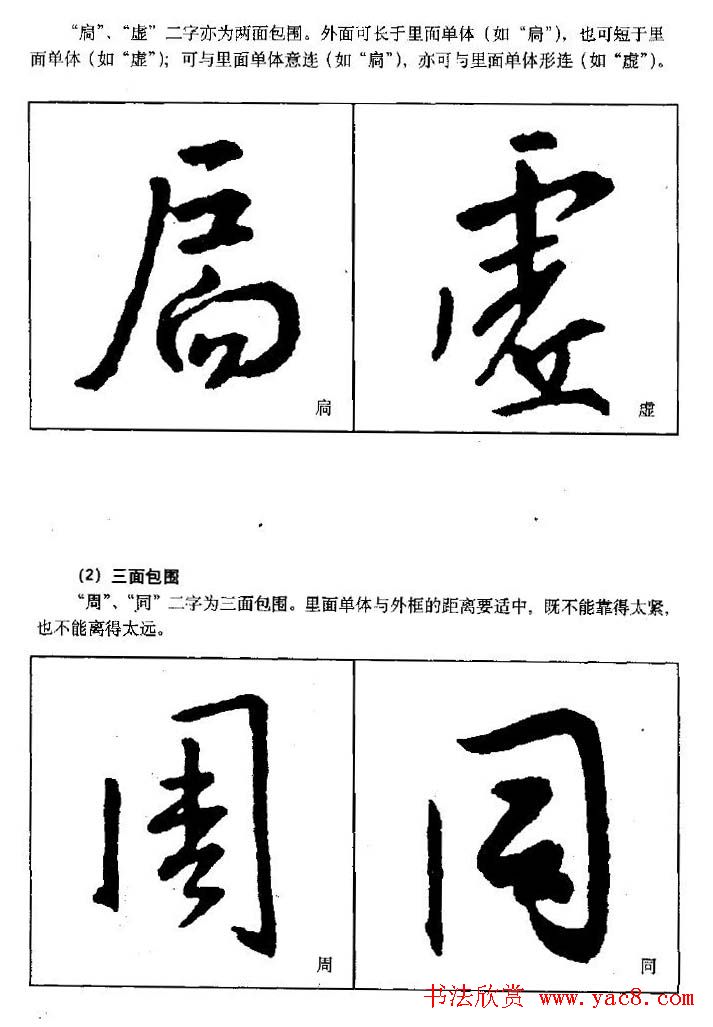 “扃”、“虚”二字亦为两面包围。外面可长于里面单体（如“扃”），也可短于里
面单体（如“虚”）；可与里面单体意连（如“扃”），亦可与里面单体形连（如“虚”）。
扃 虚
扃 虚
（2）三面包围
“周”、“同”二字为三面包围。里面单体与外框的距离要适中，既不能靠得太紧，
也不能离得太远。
周 同
周 同
书法欣赏 www.yac8.com